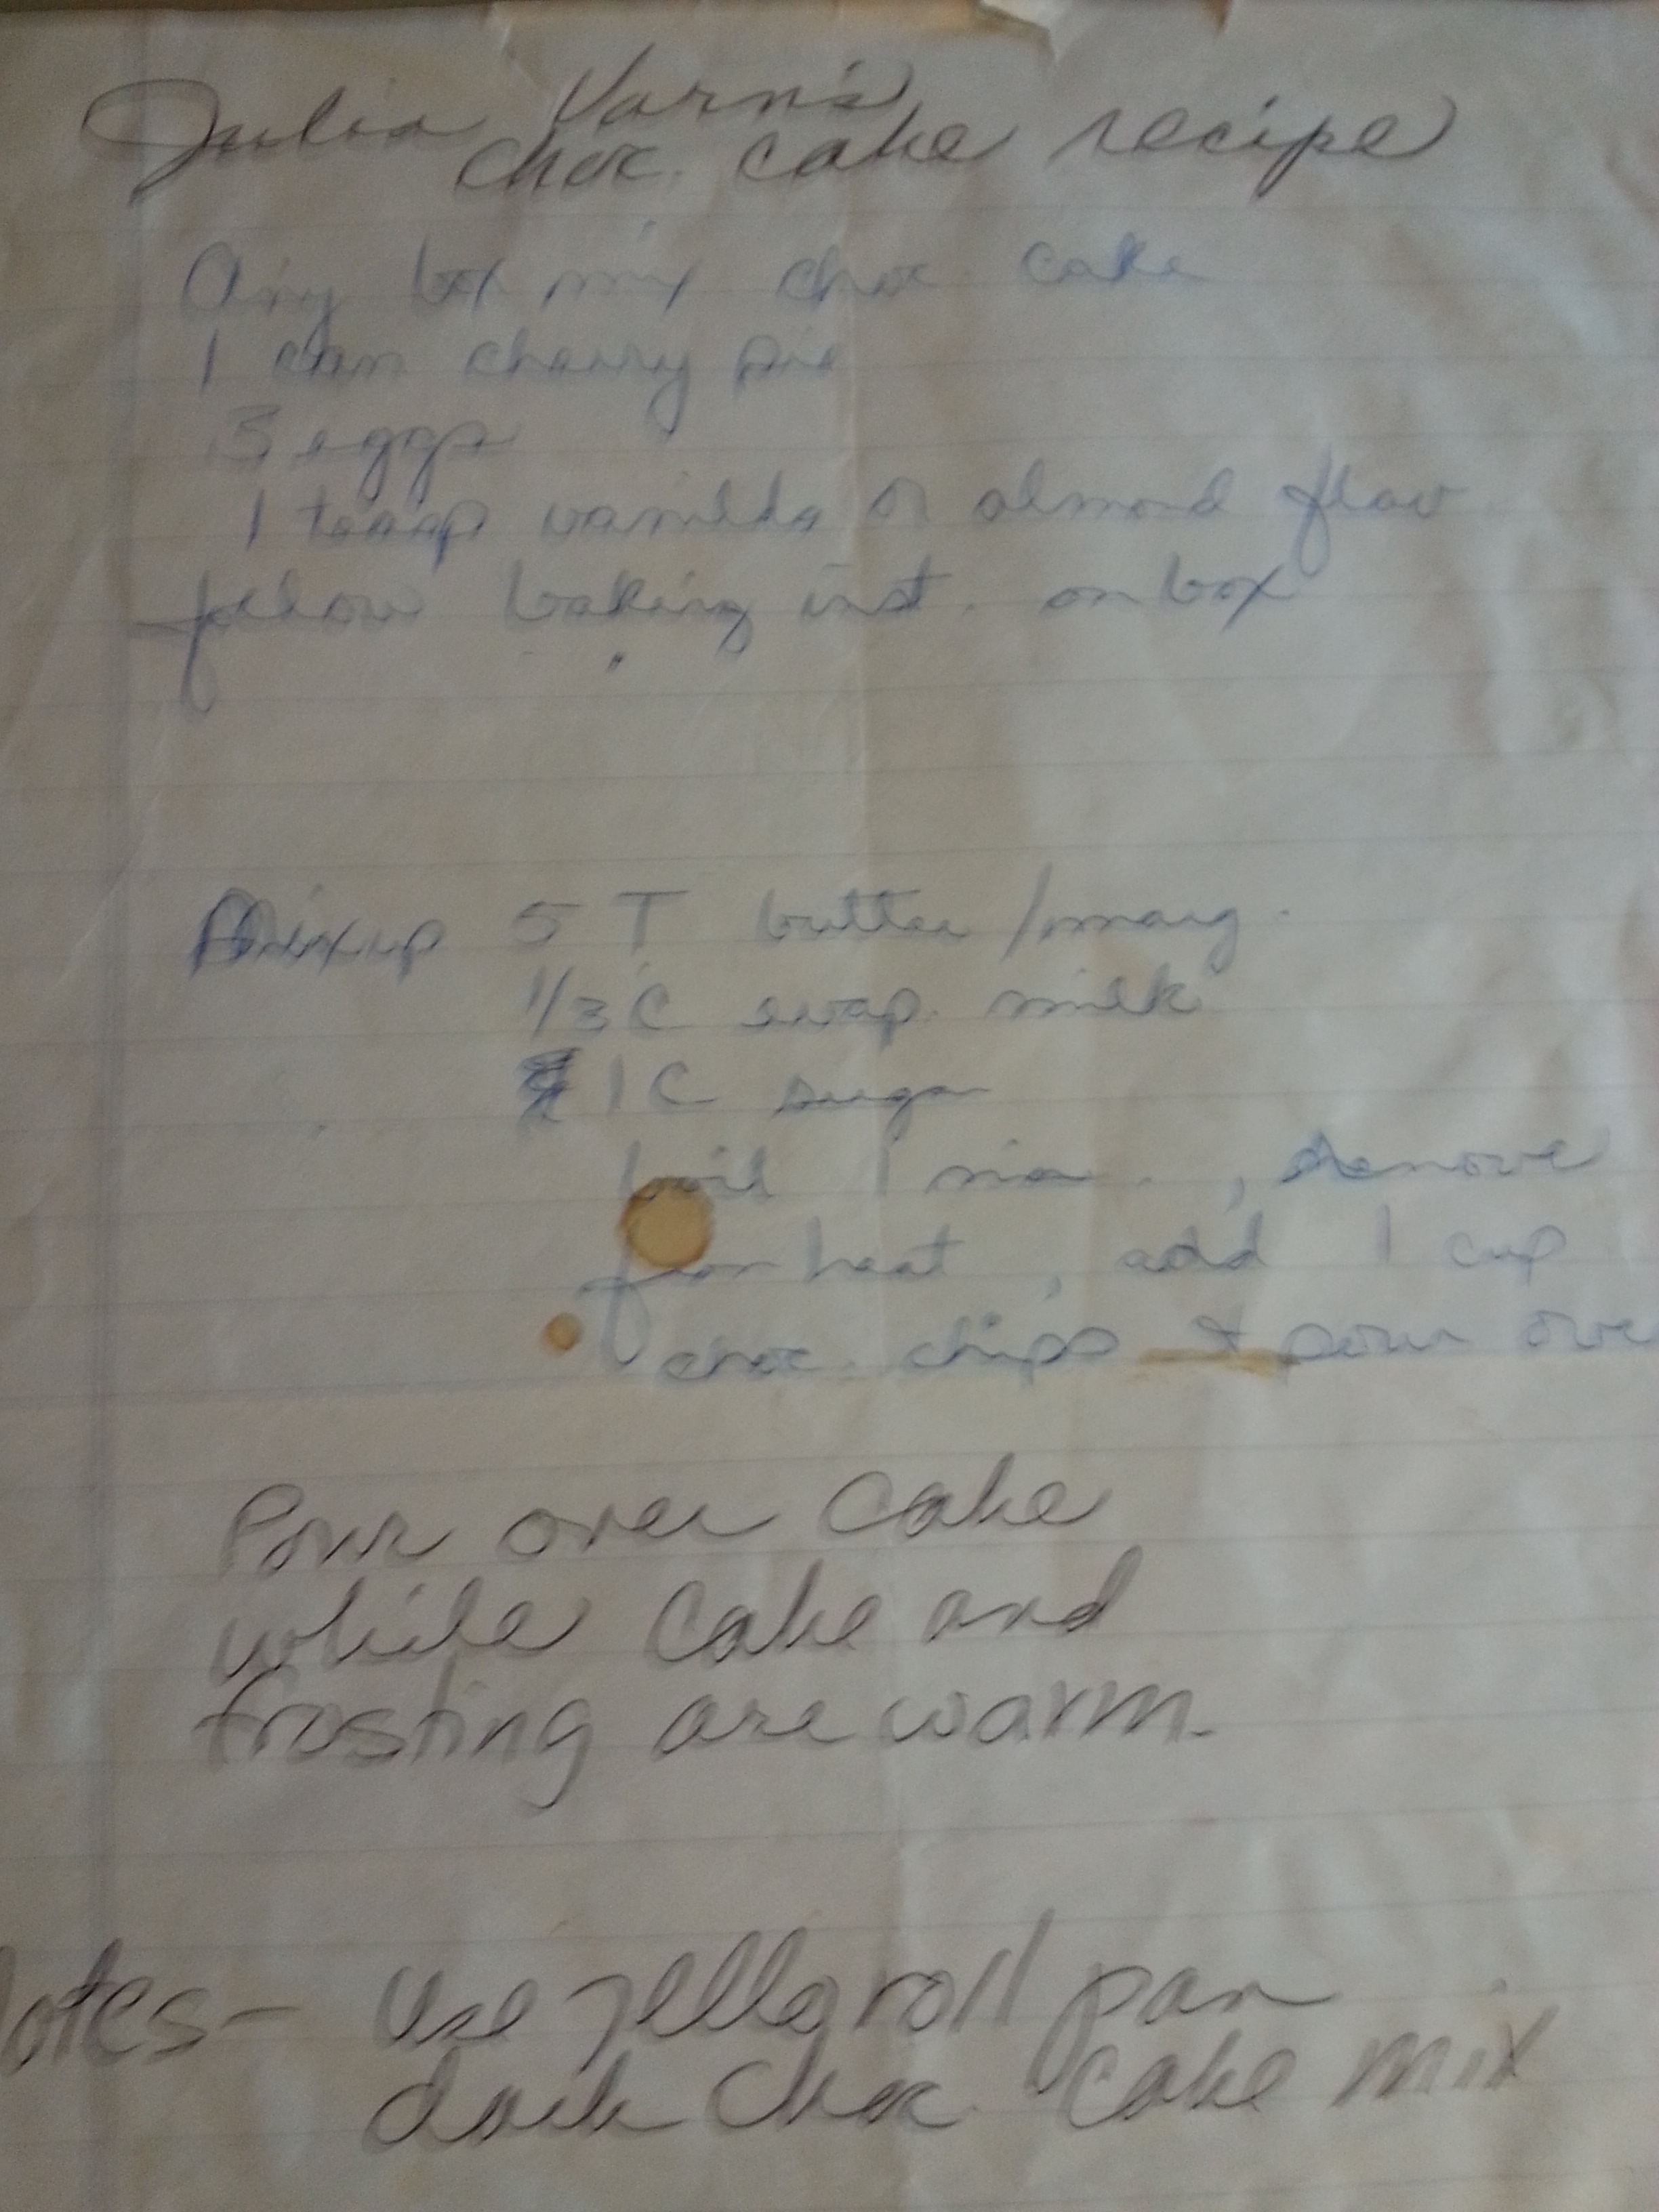 Julia Varn's
choc. cake recipe
Any box mix choc. cake
1 can cherry pie
3 eggs
1 teasp vanilla or almond flav.
follow baking inst. on box
Mix up 5 T butter/marg.
1/3 C evap. milk
1 C sugar
boil 1 min., remove
from heat, add 1 cup
choc. chips & pour over
Pour over cake
while cake and
frosting are warm.
Notes- Use jelly roll pan
dark choc. cake mix